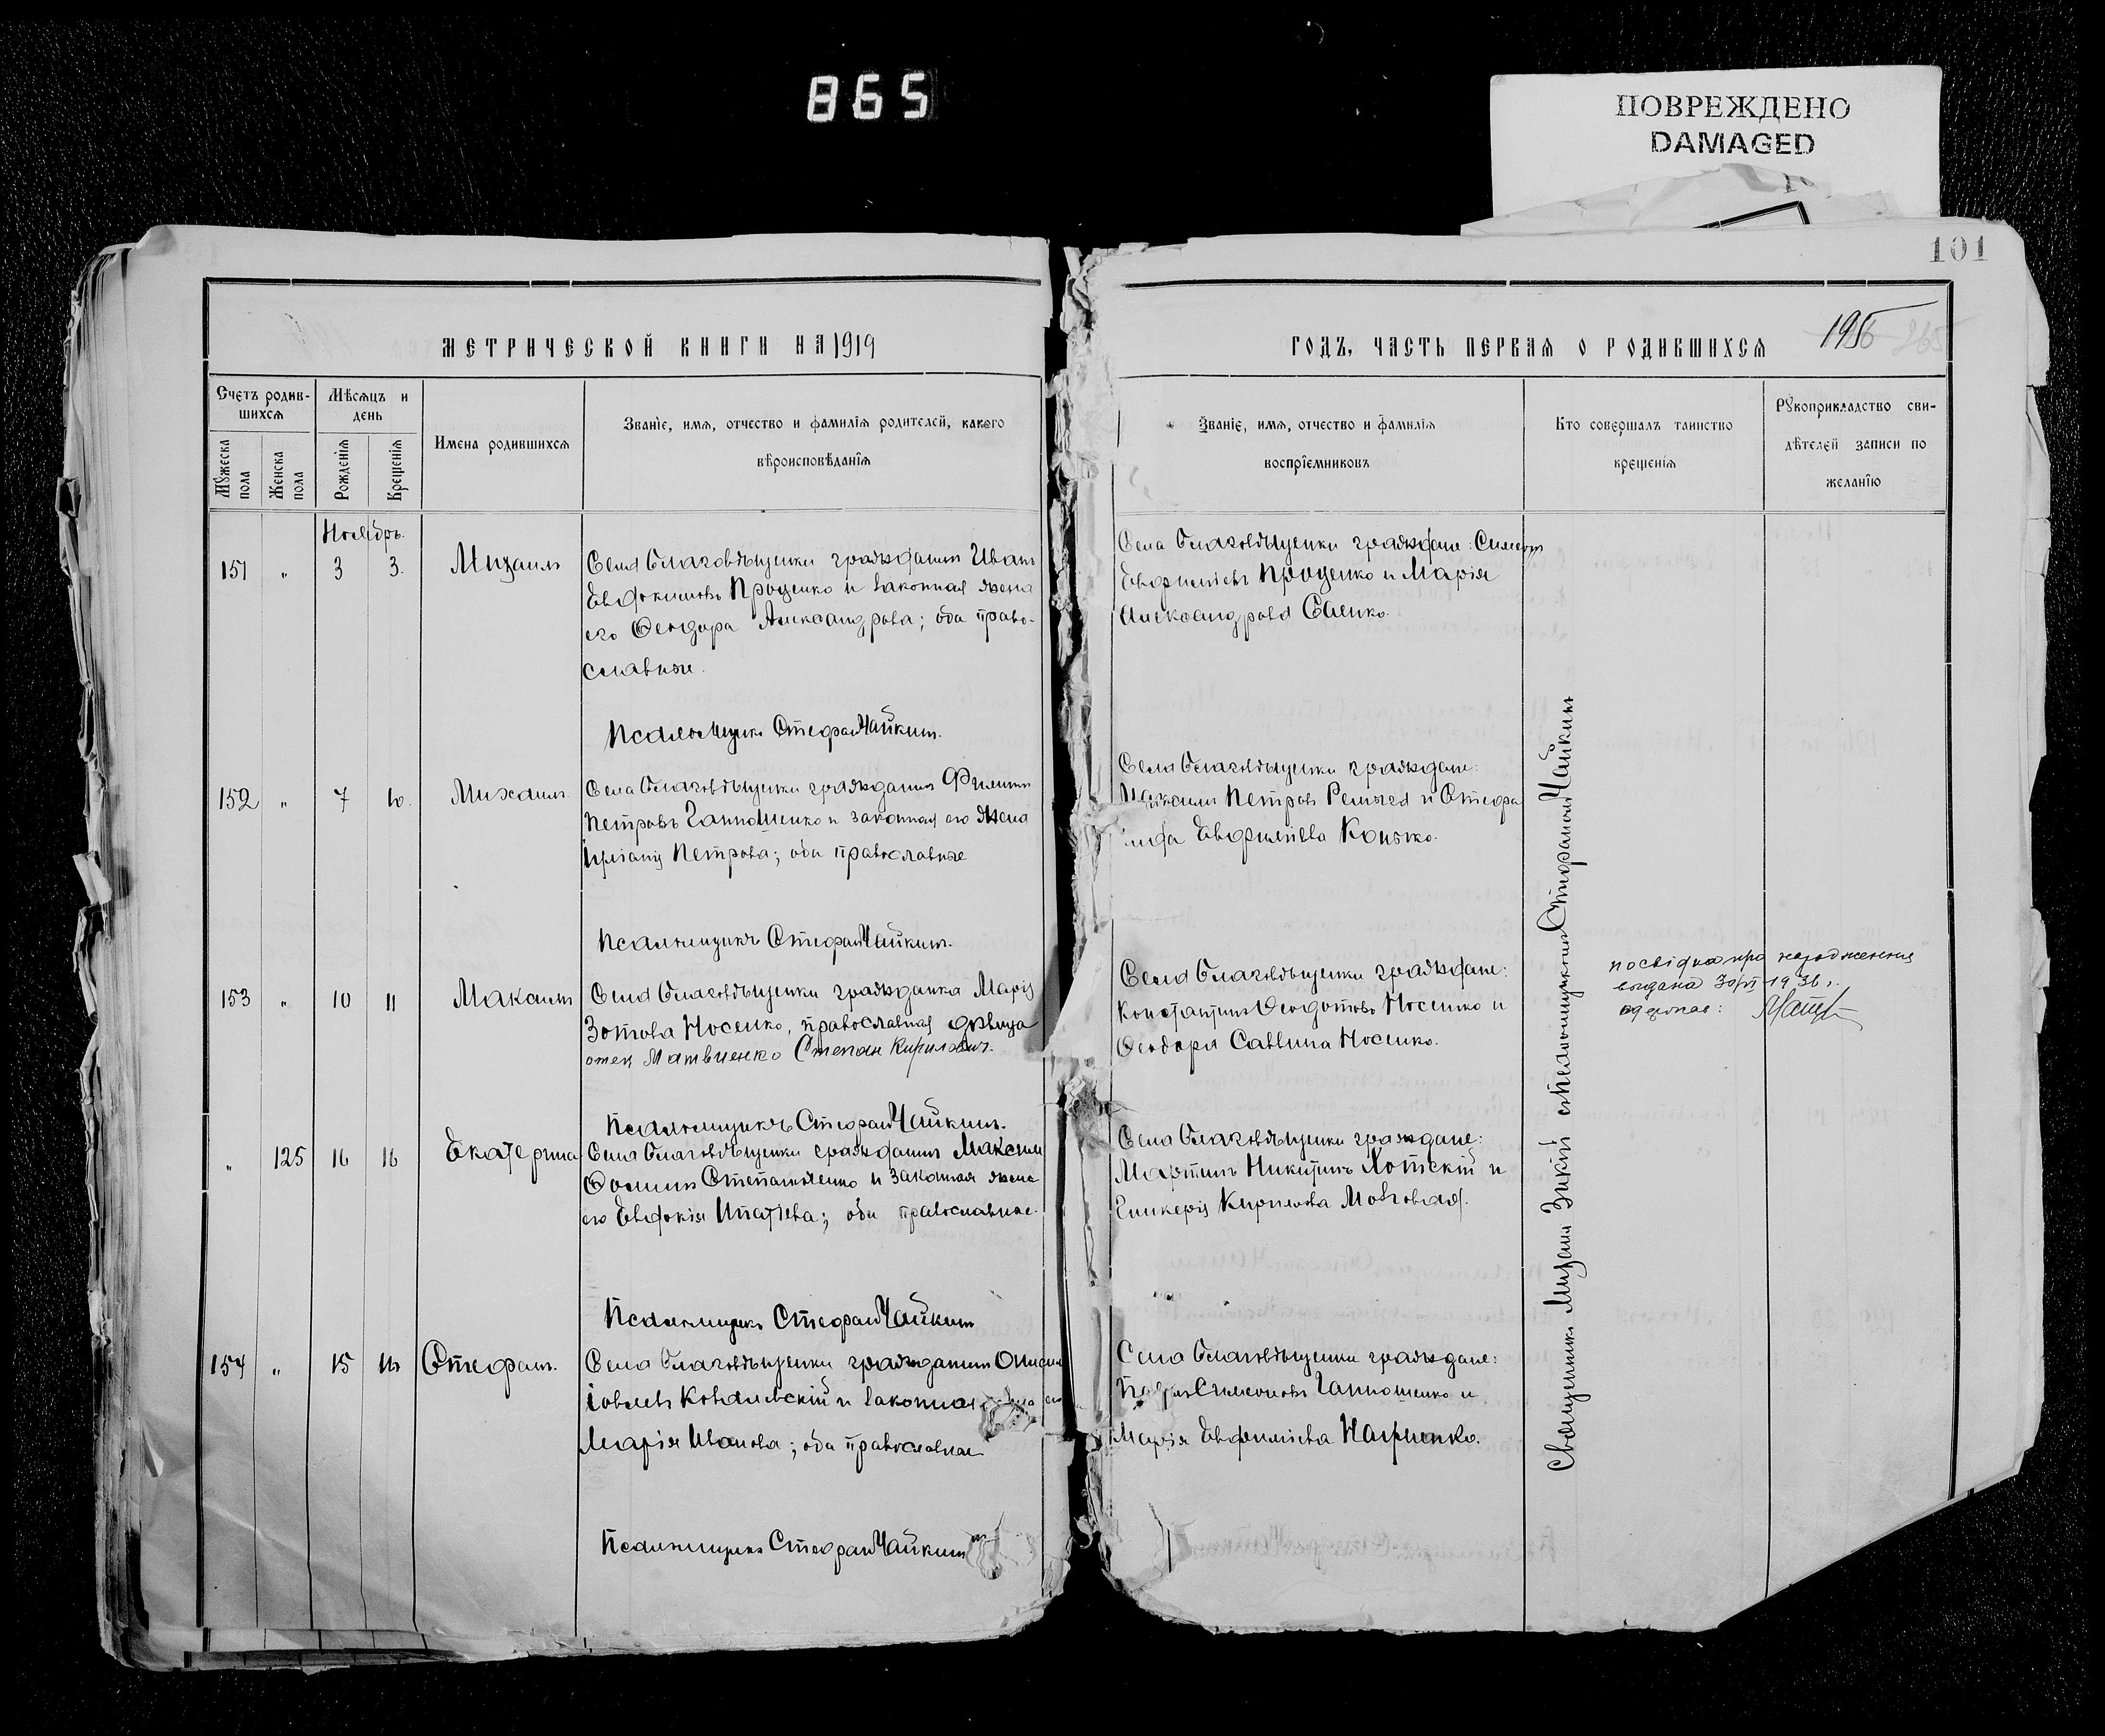 865
ПОВРЕЖДЕНО
DAMAGED
101
МЕТРИЧЕСКОЙ КНИГИ НА 1919
ГОДЪ, ЧАСТЬ ПЕРВАЯ О РОДИВШИХСЯ
195
Счетъ родив-
шихся
Мѣсяцъ и
день
Мужеска пола
Женска пола
Рожденія
Крещенія
Имена родившихся
Званіе, имя, отчество и фамилія родителей, какого
вѣроисповѣданія
Званіе, имя, отчество и фамилія
воспріемниковъ
Кто совершалъ таинство
крещенія
Рукоприкладство сви-
дѣтелей записи по
желанію
Ноябрь.
151 " 3 3. Михаилъ
Села Благовѣщенки гражданинъ Иванъ
Евдокимовъ Проценко и законная жена
его Феодора Александрова; оба право-
славные.
Псаломщикъ Стефанъ Чайкинъ.
Села Благовѣщенки граждане: Симеонъ
Евфиміевъ Проценко и Марія
Александрова Саенко.
152 " 7 10. Михаилъ
Села Благовѣщенки гражданинъ Филиппъ
Петровъ Гапношенко и законная его жена
Петрова; оба православные
Псаломщикъ Стефанъ Чайкинъ.
Села Благовѣщенки граждане:
Петровъ и Стефа
нида Евфиміева
153 " 10 11 Максимъ
Села Благовѣщенки гражданка Марія
Зотова Носенко, православная дѣвица
отец Матвиенко Степан Кирилович.
Псаломщикъ Стефанъ Чайкинъ.
Села Благовѣщенки граждане:
Константинъ Феодотовъ Носенко и
Феодора Саввина Носенко.
посвідка про народження
видана 30/VI 1936 г.
одержав:
" 125 16 16 Екатерина
Села Благовѣщенки гражданинъ Максимъ
Фоминъ Степаненко и законная жена
его Евдокія Ипатіева; оба православные.
Псаломщикъ Стефанъ Чайкинъ
Села Благовѣщенки граждане:
Мартинъ Никитинъ Хотскій и
Гликерія Кирилова Мозговая.
154 " 15 16 Стефанъ.
Села Благовѣщенки гражданинъ
Іовлевъ Ковалевскій и законная жена его
Марія Иванова; оба православные
Псаломщикъ Стефанъ Чайкинъ
Села Благовѣщенки граждане:
Симеоновъ Гапношенко и
Марія Евфиміева
Священникъ Михаилъ Зикій съ псаломщикомъ Стефаномъ Чайкинъ